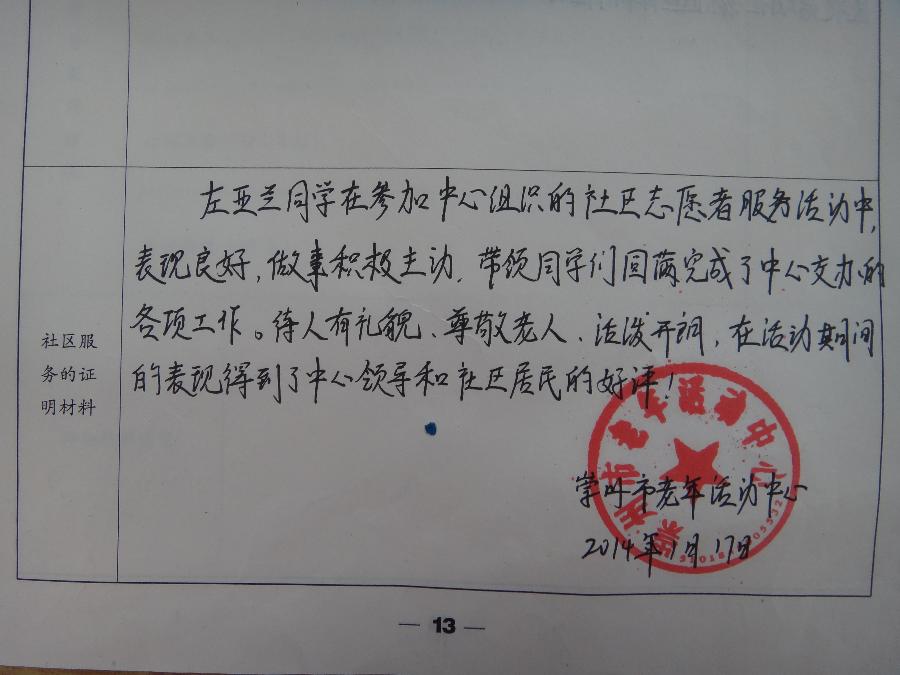 左亚兰同学在参加中心组织的社区志愿者服务活动中,
表现良好,做事积极主动,带领同学们圆满完成了中心交办的
各项工作。待人有礼貌、尊敬老人、活泼开朗,在活动期间
的表现得到了中心领导和社区居民的好评!
社区服
务的证
明材料
崇州市老年活动中心
崇州市老年活动中心
2014年1月17日
— 13 —